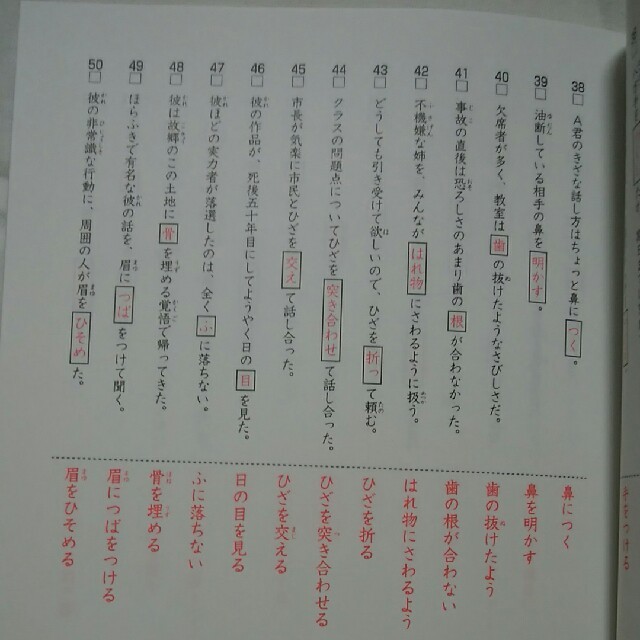 38□ A君のきざな話し方はちょっと鼻につく。
鼻につく
39□ 油断している相手の鼻を明かす。
鼻を明かす
40□ 欠席者が多く、教室は歯の抜けたようなさびしさだ。
歯の抜けたよう
41□ 事故の直後は恐ろしさのあまり歯の根が合わなかった。
歯の根が合わない
42□ 不機嫌な姉を、みんながはれ物にさわるように扱う。
はれ物にさわるよう
43□ どうしても引き受けて欲しいので、ひざを折って頼む。
ひざを折る
44□ クラスの問題点についてひざを突き合わせて話し合った。
ひざを突き合わせる
45□ 市長が気楽に市民とひざを交えて話し合った。
ひざを交える
46□ 彼の作品が、死後五十年目にしてようやく日の目を見た。
日の目を見る
47□ 彼ほどの実力者が落選したのは、全くふに落ちない。
ふに落ちない
48□ 彼は故郷のこの土地に骨を埋める覚悟で帰ってきた。
骨を埋める
49□ ほらふきで有名な彼の話を、眉につばをつけて聞く。
眉につばをつける
50□ 彼の非常識な行動に、周囲の人が眉をひそめた。
眉をひそめる